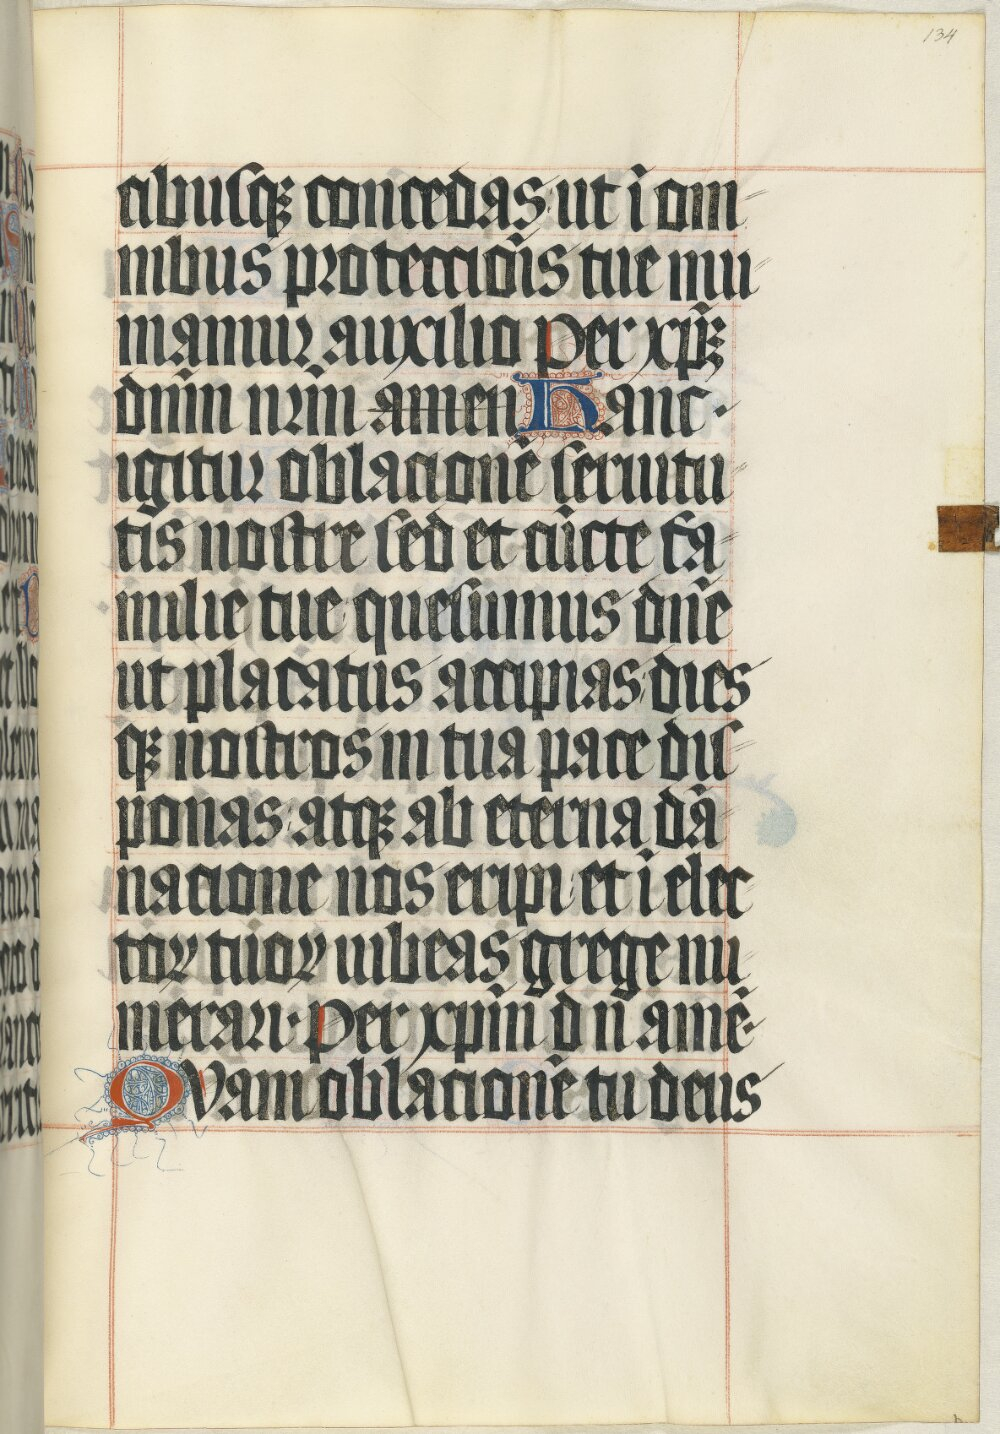 134
cibusqʒ concedas ut ī om
nibus protecciōīs tue mu
niamur auxilio Per xpʒ̄
dn̄m nr̄m amen Hanc·
igitur oblacionē seruitu
tis nostre sed et cūcte fa
milie tue quesumus dn̄e
ut placatus accipias dies
qʒ nostros in tua pace dis
ponas atqʒ ab eterna dā
nacione nos eripi et ī elec
toꝝ tuoꝝ iubeas grege nu
merari· Per xp̄m d n̄ amē·
QVam oblacionē tu deus